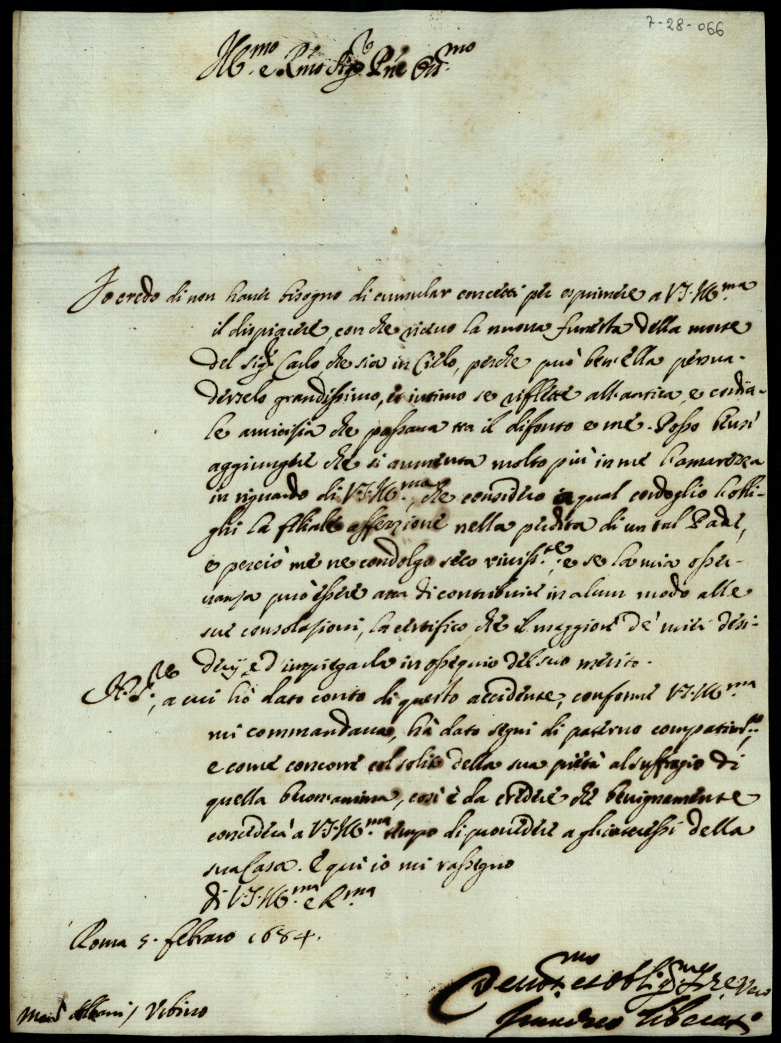 7-28-066
Ill.mo e R.mo Sig.r P.ne Col.mo
Io credo di non haver bisogno di cumular concetti per esprimere a V.S. Ill.ma
il dispiacere, con che ricevo la nuova funesta della morte
del Sig.r Carlo, che sia in Cielo, perche può ben'ella persua-
derselo grandissimo, et intimo se riflette all'antica, e cordia-
le amicisia che passava tra il difonto e me. Posso bensì
aggiungere che si aumenta molto più in me l'amarezza
in riguardo di V.S. Ill.ma, che considero in qual cordoglio l'obli-
ghi la filiale affezzione nella perdita di un tal Padre,
e perciò me ne condolgo seco viviss.te; e se la mia osser-
vanza può essere atta di contribuire in alcun modo alle
sue consolationi, la certifico che il maggiore de' miei desi-
derij, è d'impiegarla in ossequio del suo merito.
N. S.re, a cui hò dato conto di questo accidente, conforme V.S. Ill.ma
mi commandava, hà dato segni di paterno compatim.to,
e come concorre col solito della sua pietà al suffragio di
quella buon'anima, così è da credere che benignamente
concederà a V.S. Ill.ma tempo di provedere a gl'interessi della
sua Casa. E qui io mi rassegno
di V.S. Ill.ma e R.ma
Roma 5. febraro 1684.
Devot.mo et Obblig.mo Ser.re vero
Mons.r Albani / Urbino
Francesco Liberati